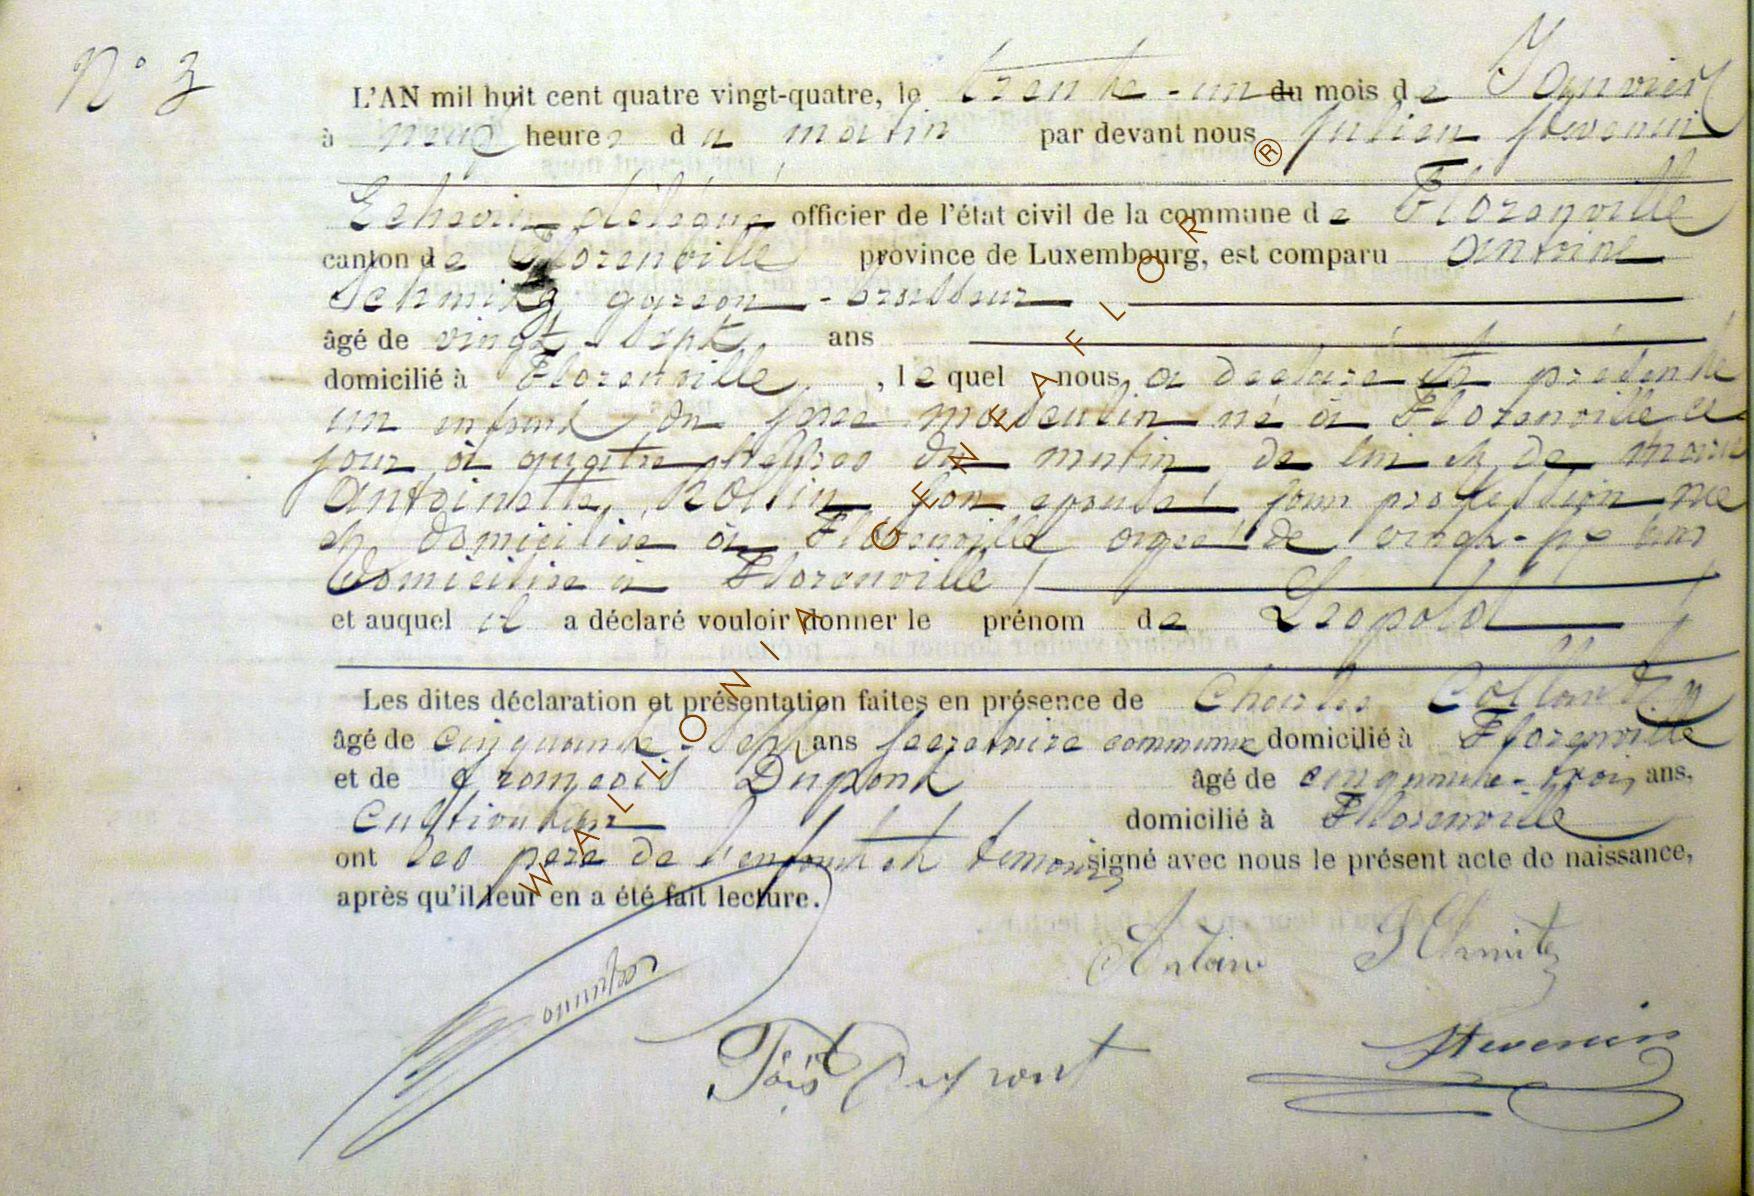 N° 3
L'AN mil huit cent quatre vingt-quatre, le trente-un du mois de Janvier
à neuf heures du matin par devant nous Julien Stevenin
Echevin délégué officier de l'état civil de la commune de Florenville
canton de Florenville province de Luxembourg, est comparu Antoine
Schmitz garçon-brasseur
âgé de vingt-sept ans
domicilié à Florenville, lequel nous a déclaré et présenté
un enfant du sexe masculin né à Florenville ce
jour à quatre heures du matin de lui et de Marie
Antoinette son épouse sans profession née
et domiciliée à Florenville agée de vingt- ans
domiciliée à Florenville
et auquel il a déclaré vouloir donner le prénom de Léopold
Les dites déclaration et présentation faites en présence de Charles
âgé de cinquante-sept ans secretaire communal domicilié à Florenville
et de François Dupont âgé de cinquante-trois ans,
cultivateur domicilié à Florenville
ont les père de l'enfant et témoins signé avec nous le présent acte de naissance,
après qu'il leur en a été fait lecture.
Antoine Schmitz
Fçois Dupont
Stevenin
WALLONIA GENEAFLOR ®